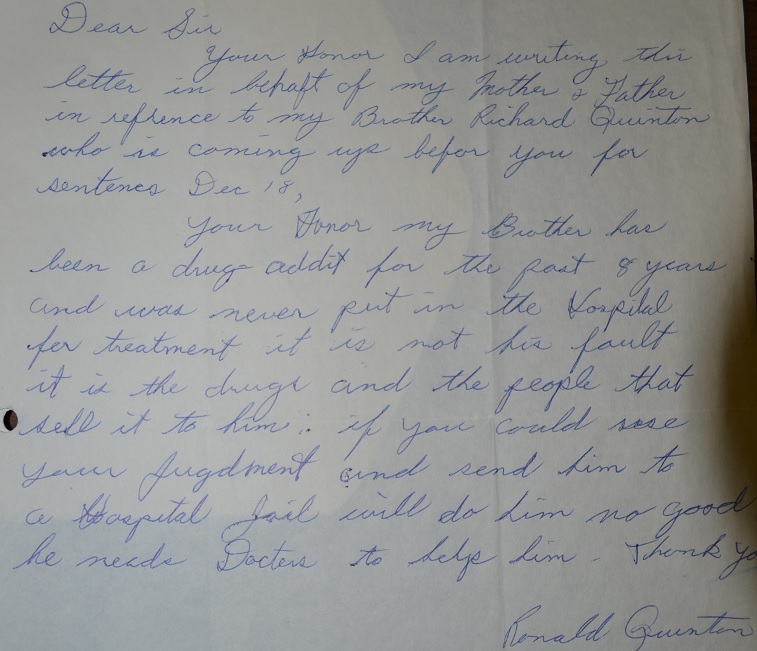 Dear Sir
Your Honor I am writing this
letter in behaft of my Mother & Father
in refrence to my Brother Richard Quinton
who is coming up befor you for
sentences Dec 18,
Your Honor my Brother has
been a drug addit for the past 8 years
and was never put in the Hospital
for treatment it is not his fault
it is the drugs and the people that
sell it to him: if you could
your Jugdment and send him to
a Hospital Jail will do him no good
he needs Docters to help him. Thank Yo
Ronald Quinton